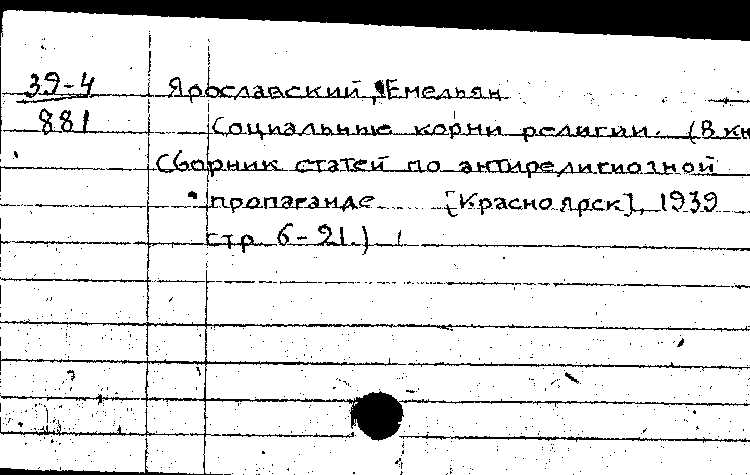 39-4 Ярославский, Емельян
881 Социальные корни религии. (В кн
Сборник статей по антирелигиозной
пропаганде [Красноярск], 1939
стр. 6-21.)